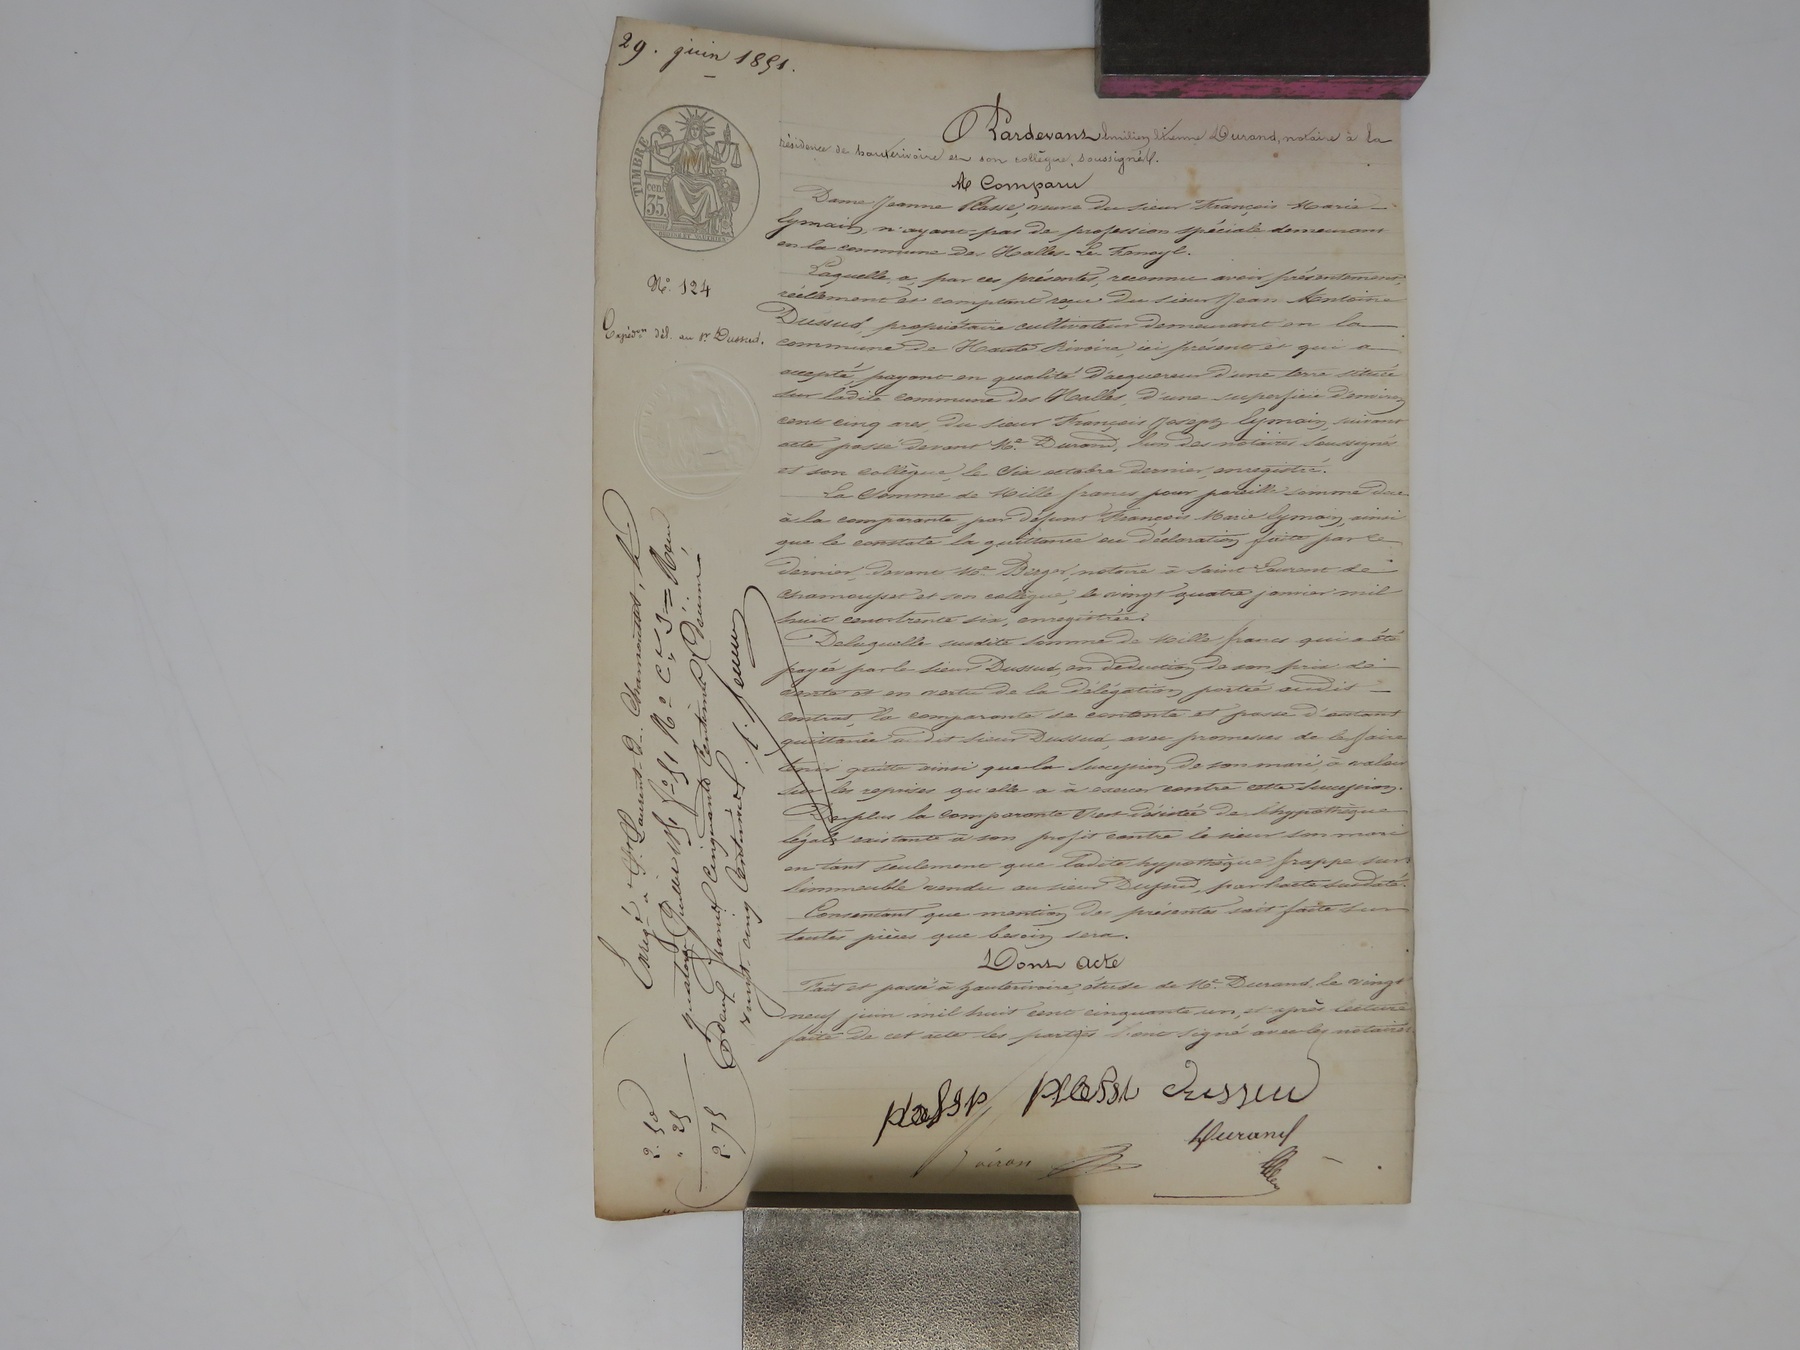 29. juin 1851.
TIMBRE
cen
35.
Pardevant Emilien Etienne Durand, notaire à la
résidence de hauterivoire et son collègue, soussignés.
A Comparu
Dame Jeanne Plasse, veuve du sieur François Marie
Eymain, n'ayant pas de profession spéciale demeurant
en la commune des Halles-Le-Fenoyl.
N°. 124
Expédon dél. au sr Dussud.
Laquelle a, par ces présentes, reconnu avoir présentement,
réellement et comptant reçu du sieur Jean Antoine
Dussud, propriétaire cultivateur demeurant en la
commune de Haute Rivoire, ici présent et qui a
accepté, payant en qualité d'acquéreur d'une terre située
sur ladite commune des Halles, d'une superficie d'environ
cent cinq ares, du sieur François Joseph Eymain, suivant
acte passé devant Me. Durand, l'un des notaires soussignés
et son collègue, le Six octobre dernier, enregistré.
La Somme de Mille francs pour pareille somme due
à la comparante par défunt François Marie Eymain, ainsi
que le constate la quittance ou déclaration faite par ce
dernier, devant Me. Berger, notaire à Saint Laurent de
Chamousset et son collègue, le vingt quatre janvier mil
huit cent trente six, enregistrée.
Delaquelle susdite somme de Mille francs qui a été
payée par le sieur Dussud, en déduction de son prix de
vente et en vertu de la délégation portée audit
contrat, la comparante se contente et passe d'autant
quittance audit sieur Dussud, avec promesses de le faire
tenir quitte ainsi que la Succession de son mari, à valoir
sur les reprises qu'elle a à exercer contre cette Succession.
De plus la comparante s'est désistée de l'hypothèque
légale existante à son profit contre le sieur son mari
en tant seulement que ladite hypothèque frappe sur
l'immeuble vendu au sieur Dussud, par l'acte susdaté.
Consentant que mention des présentes soit faite sur
toutes pièces que besoin sera.
Dont Acte
Fait et passé à hauterivoire, étude de Me. Durand, le vingt
neuf juin mil huit cent cinquante un, et après lecture
faite de cet acte les parties l'ont signé avec les notaires
Plasse Dussud
Durand
Enregé à St. Laurent de Chamousset, le
quatre Juillet 1851 fo. 51 Ro. c. 2 & 3 = Reçu
Deux francs cinquante Centimes, Décime
vingt cinq Centimes
2.50
" 25
2.75